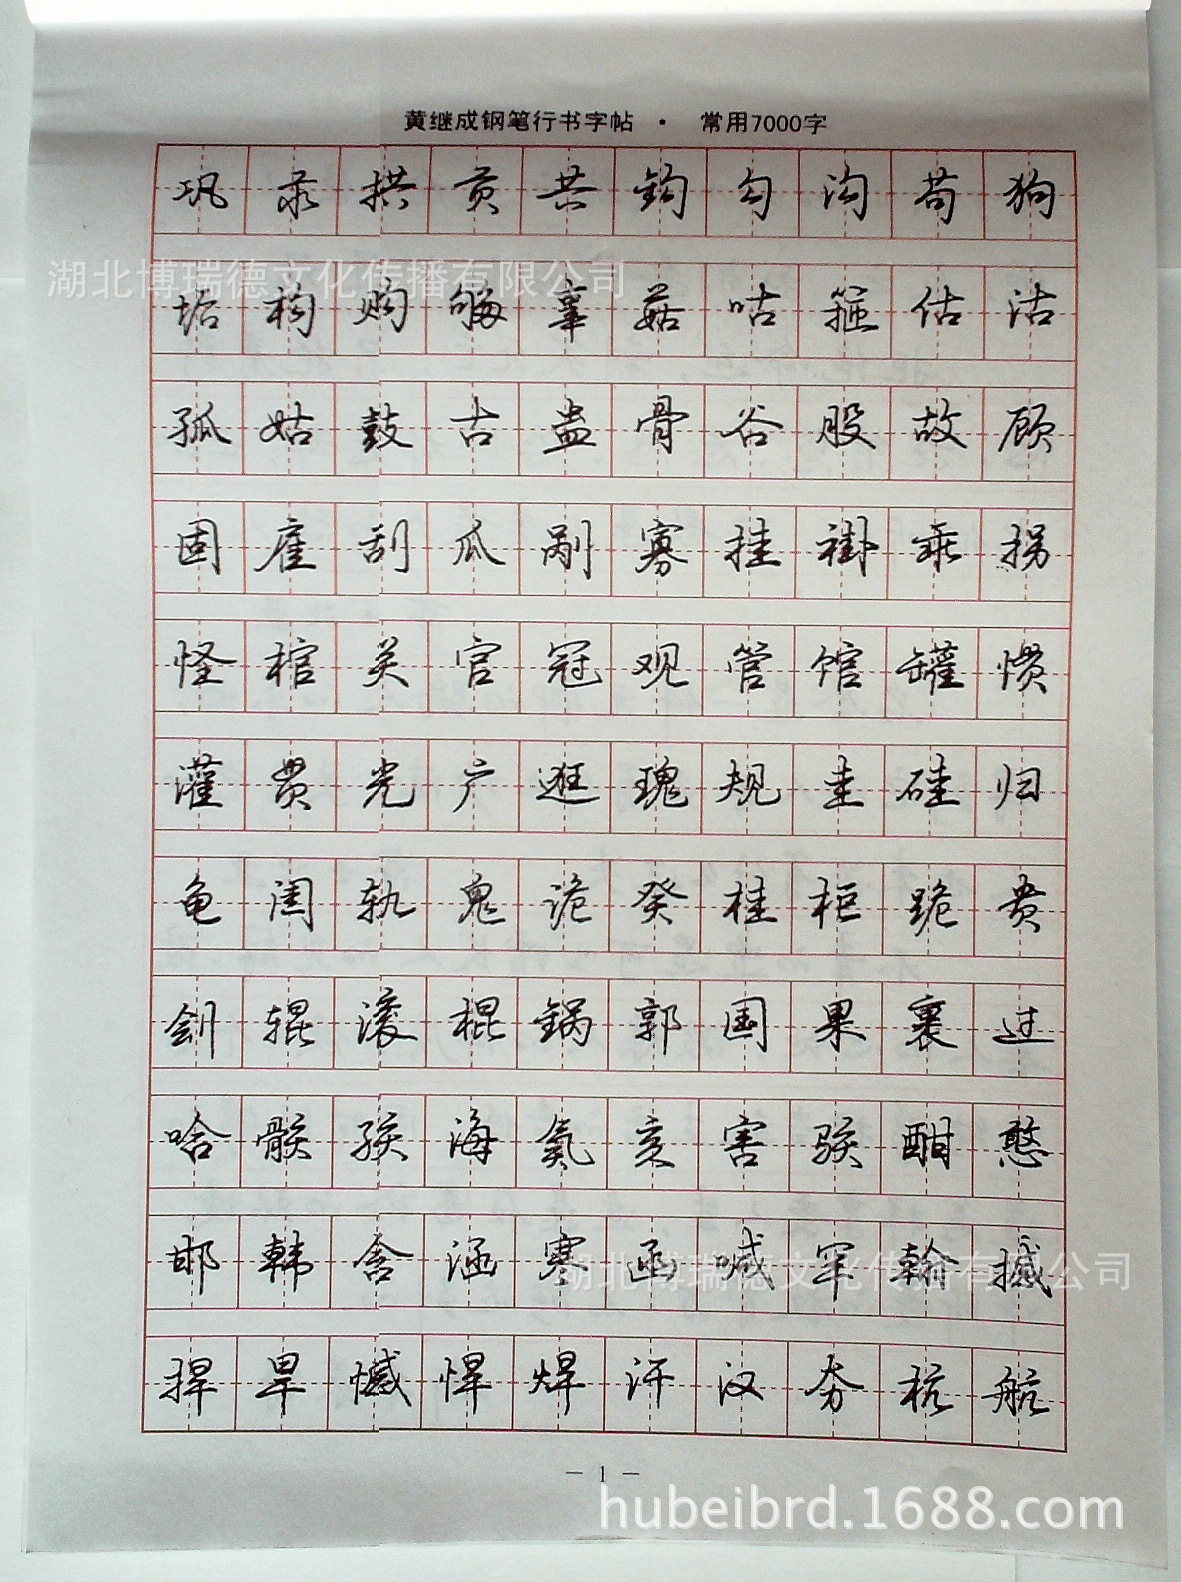 黄继成钢笔行书字帖 · 常用7000字
巩汞拱贡共钩勾沟苟狗
湖北博瑞德文化传播有限公司
垢构购够辜菇咕箍估沽
孤姑鼓古蛊骨谷股故顾
固雇刮瓜剐寡挂褂乖拐
怪棺关官冠观管馆罐惯
灌贯光广逛瑰规圭硅归
龟闺轨鬼诡癸桂柜跪贵
刽辊滚棍锅郭国果裹过
哈骸孩海氦亥害骇酣憨
邯韩含涵寒函喊罕翰撼
湖北博瑞德文化传播有限公司
捍旱憾悍焊汗汉夯杭航
— 1 —
hubeibrd.1688.com